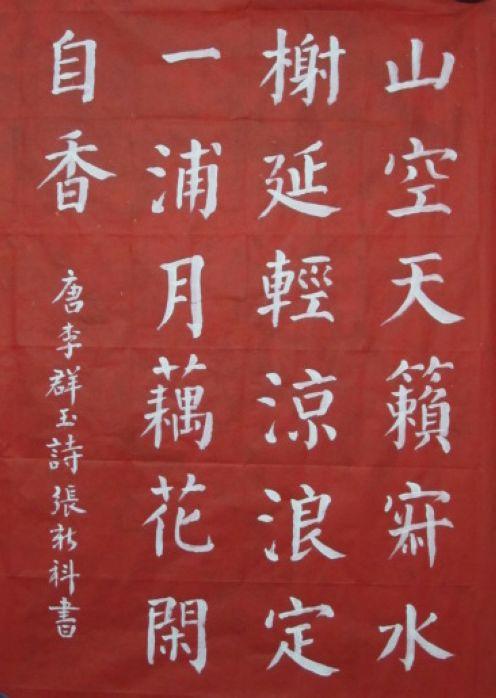 山空天籟寂水
榭延輕涼浪定
一浦月藕花閑
自香
唐李群玉詩張新科書